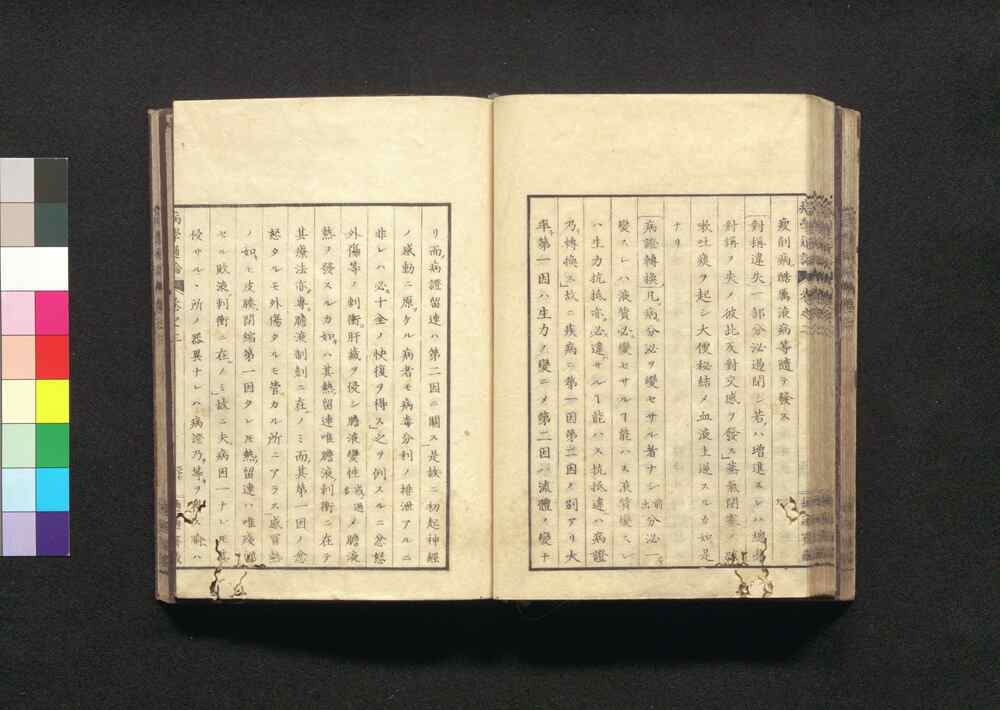 瘦削病酷厲液病等隨テ發ス
對搆違失一部分泌過閉シ若ハ增進スレハ
對搆ノ失ノ彼此反對交感ヲ發ス蒸氣閉塞
嗽吐痰ヲ起シ大便秘結メ血液上逆スルカ如是
ナリ
病證轉換凡病分泌ヲ變セサル者ナシ前出分泌一
變スレハ液質必變セサルヿ能ハス液質變スレ
ハ生力抗抵亦必違サルヿ能ハス抗抵違ハ病證
乃轉換ス故ニ疾病ニ第一因第二因ノ別アリ大
率第一因ハ生力ノ變ニメ第二因ハ流體ノ變ナ
リ而病證留連ハ第二因ニ關ス是故ニ初起神經
ノ感動ニ原ケル病者モ病毒分利ノ排泄アルニ
非レハ必十全ノ快復ヲ得ス之ヲ例スルニ忿怒
外傷等ノ刺衝肝藏ヲ侵シ膽液變性或過多メ膽液
熱ヲ發スルカ如ハ其熱留連唯膽液刺衝ニ在テ
其療法亦專膽液制剤ニ在ノミ而其第一因ノ忿
怒タルモ外傷タルモ管カル所ニアラス感冒熱
ノ如モ皮膚閉縮第一因タレ𪜈熱留連ハ唯殘
セル敗液刺衝ニ在ノミ故ニ夫病因一ナレ𪜈其
侵サルヽ所ノ器異ナレハ病證乃等ヲ
病學通論 卷之三